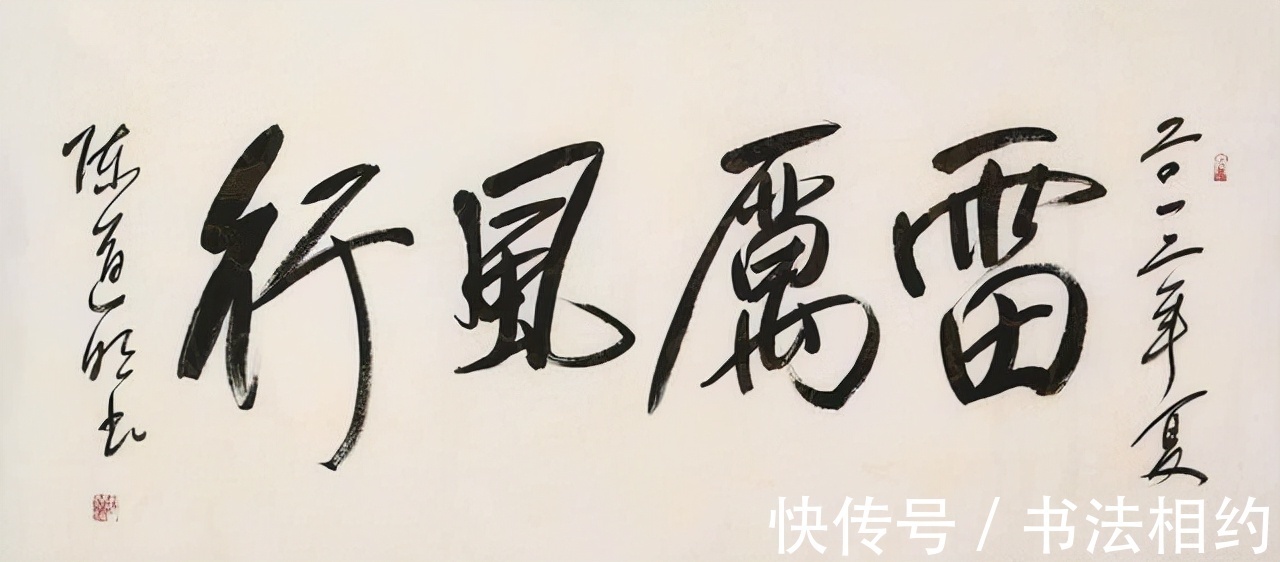 二〇一三年夏
雷厲風行
陈道明书
快传号 / 书法相约